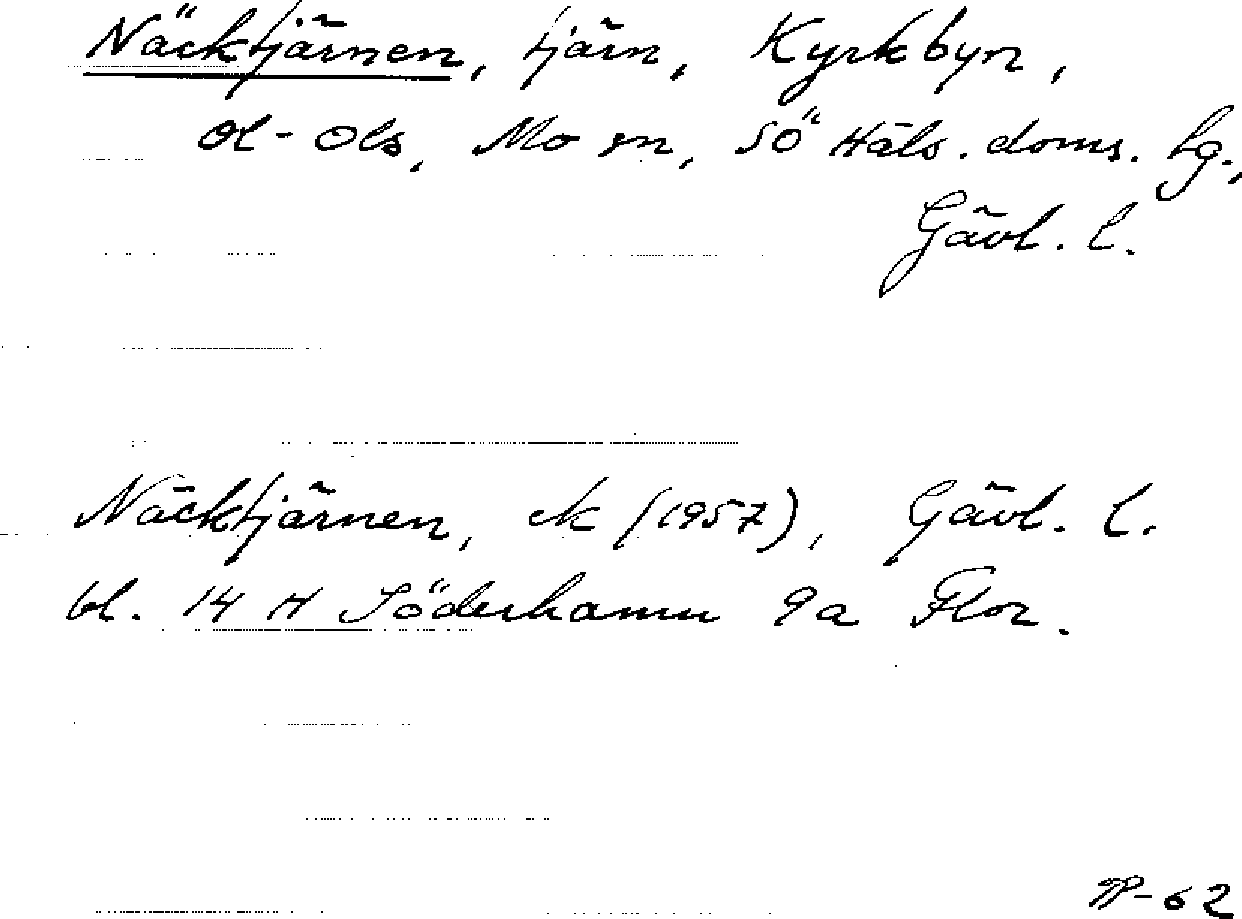 Näcktjärnen, tjärn, Kyrkbyn,
Ol-Ols, Mo sn, Sö Häls. doms. hg.,
Gävl. l.
Näcktjärnen, ek (1957), Gävl. l.
bl. 14 H Söderhamn 9a Flor.
-62